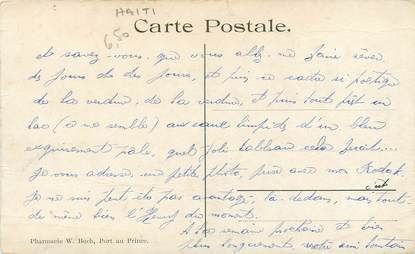 HAITI
6,50
Carte Postale.
et savez-vous, que vous allez me faire rêver
de jours de ces jours, et puis ce cadre si poétique
de la verdure, de la verdure, et puis tout près un
lac (à me semble) aux eaux limpides d'un bleu
exquisement pâle, quel joli tableau cela ferait...
Je vous adresse une petite photo, prise avec mon Kodak
c'est
Je ne suis peut-être pas avantagé, là-dedans, mais tout-
de-même bien l'Henry du moment.
A la semaine prochaine et bien
plus longuement, votre ami lointain
Pharmacie W. Buch, Port au Prince.